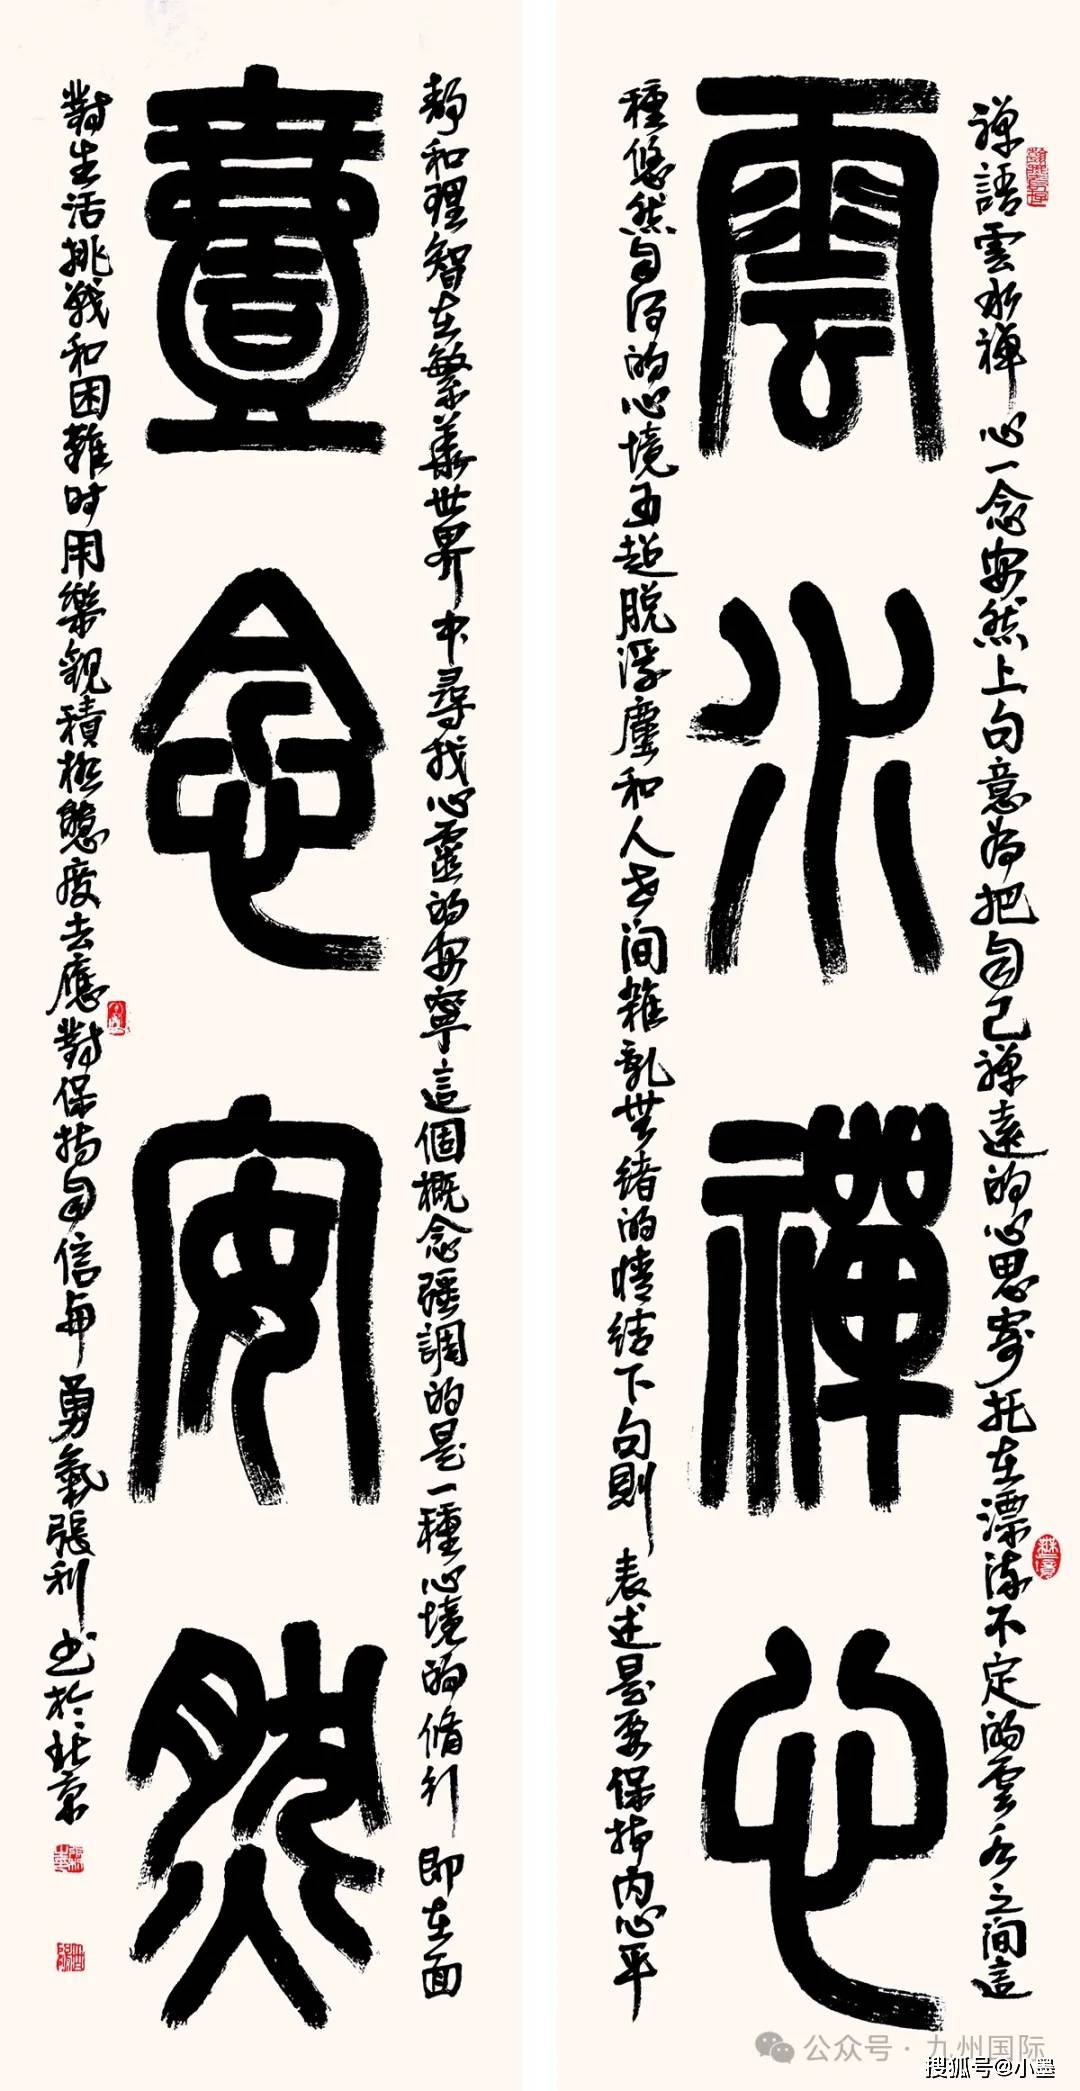 禅語雲水禅心一念安然上句意为把自己禅遠的心思寄托在漂流不定的雲水之间這
雲水禪心
種悠然自得的心境为超脱浮塵和人世间雜亂無绪的情结下句則表述是要保持内心平
静和理智在繁華世界中尋找心靈的安寧這個概念强調的是一種心境的脩行即在面
壹念安然
對生活挑戰和困難时用樂觀積极態度去應對保持自信與勇氣張利书於北京
公众号·九州国际
搜狐号@小墨